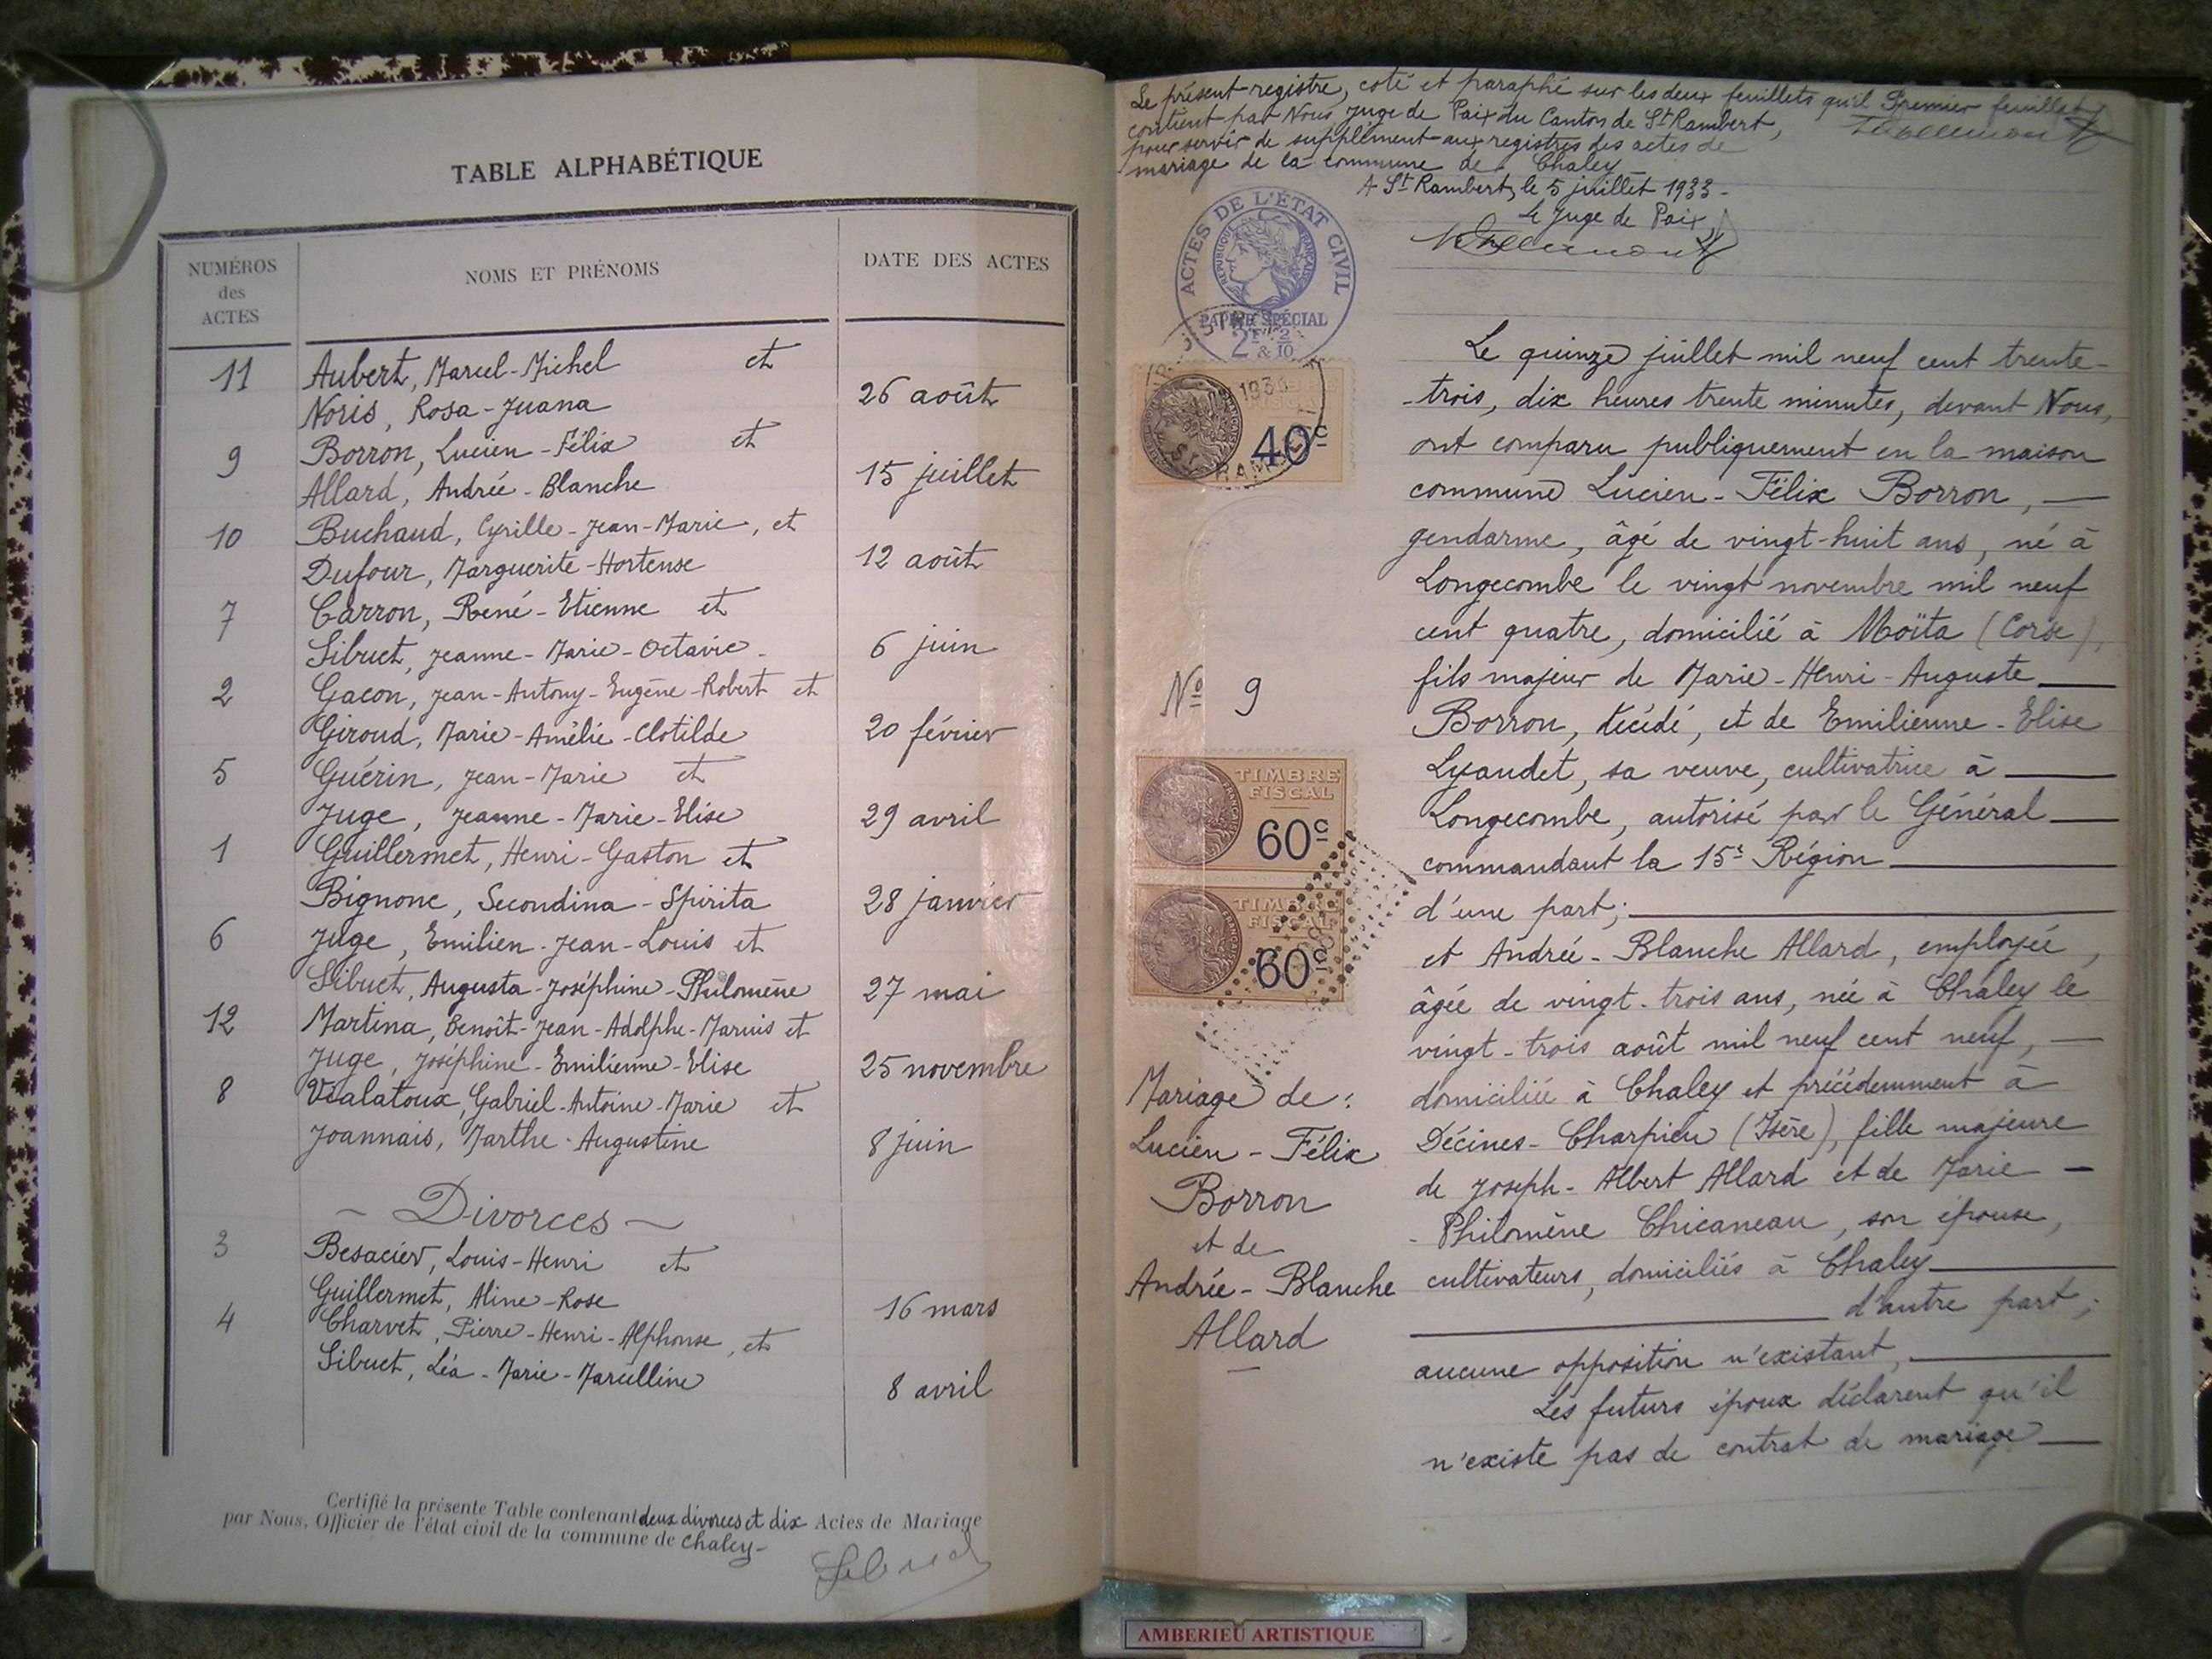 TABLE ALPHABÉTIQUE
NUMÉROS
des
ACTES
NOMS ET PRÉNOMS
DATE DES ACTES
11 Aubert, Marcel-Michel et
Noris, Rosa-Juana 26 août
9 Borron, Lucien-Félix et
Allard, Andrée-Blanche 15 juillet
10 Buchaud, Cyrille-Jean-Marie, et
Dufour, Marguerite-Hortense 12 août
7 Carron, René-Etienne et
Sibuet, Jeanne-Marie-Octavie- 6 juin
2 Gacon, Jean-Antony-Eugène-Robert et
Giroud, Marie-Amélie-Clotilde 20 février
5 Guérin, Jean-Marie et
Juge, Jeanne-Marie-Elise 29 avril
1 Guillermet, Henri-Gaston et
Bignone, Secondina-Spirita 28 janvier
6 Juge, Emilien-Jean-Louis et
Sibuet, Augusta-Joséphine-Philomène 27 mai
12 Martina, Benoît-Jean-Adolphe-Marius et
Juge, Joséphine-Emilienne-Elise 25 novembre
8 Vialatoux, Gabriel-Antoine-Marie et
Joannais, Marthe-Augustine 8 juin
- Divorces -
3 Besacier, Louis-Henri et
Guillermet, Aline-Rose 16 mars
4 Charvet, Pierre-Henri-Alphonse, et
Sibuet, Léa-Marie-Marcelline 8 avril
Certifié la présente Table contenant deux divorces et dix Actes de Mariage
par Nous, Officier de l'état civil de la commune de Chaley-
Le présent registre, coté et paraphé sur les deux feuillets qu'il Premier feuillet
contient par Nous Juge de Paix du Canton de St Rambert,
pour servir de supplément aux registres des actes de
mariage de la commune de Chaley
A St Rambert, le 5 juillet 1933-
Le Juge de Paix,
ACTES DE L'ÉTAT CIVIL
RÉPUBLIQUE FRANÇAISE
PAPIER SPÉCIAL
2F 2/10
&
1933
40c
ST RAMBERT
Nº 9
TIMBRE
FISCAL
60c
TIMBRE
FISCAL
60c
Mariage de:
Lucien-Félix
Borron
et de
Andrée-Blanche
Allard
Le quinze juillet mil neuf cent trente-
-trois, dix heures trente minutes, devant Nous,
ont comparu publiquement en la maison
commune Lucien-Félix Borron,
gendarme, âgé de vingt-huit ans, né à
Longecombe le vingt novembre mil neuf
cent quatre, domicilié à Moïta (Corse),
fils majeur de Marie-Henri-Auguste
Borron, décédé, et de Emilienne-Elise
Lyaudet, sa veuve, cultivatrice à
Longecombe, autorisé par le Général
commandant la 15e Région
d'une part;
et Andrée-Blanche Allard, employée,
âgée de vingt-trois ans, née à Chaley le
vingt-trois août mil neuf cent neuf,
domiciliée à Chaley et précédemment à
Décines-Charpieu (Isère), fille majeure
de Joseph-Albert Allard et de Marie
-Philomène Chicaneau, son épouse,
cultivateurs, domiciliés à Chaley
d'autre part;
aucune opposition n'existant,
Les futurs époux déclarent qu'il
n'existe pas de contrat de mariage
AMBERIEU ARTISTIQUE